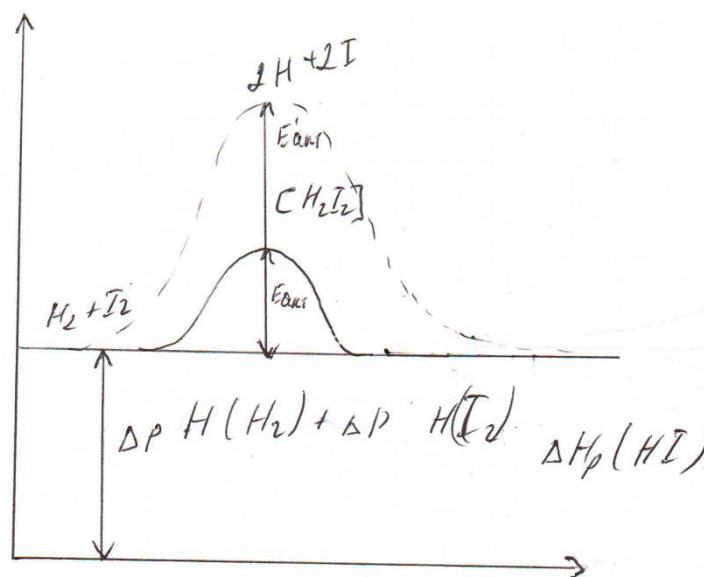 2H+2I
E'акт
[H2I2]
Eакт
H2+I2
Δр H(H2)+Δр H(I2)
ΔHр(HI)